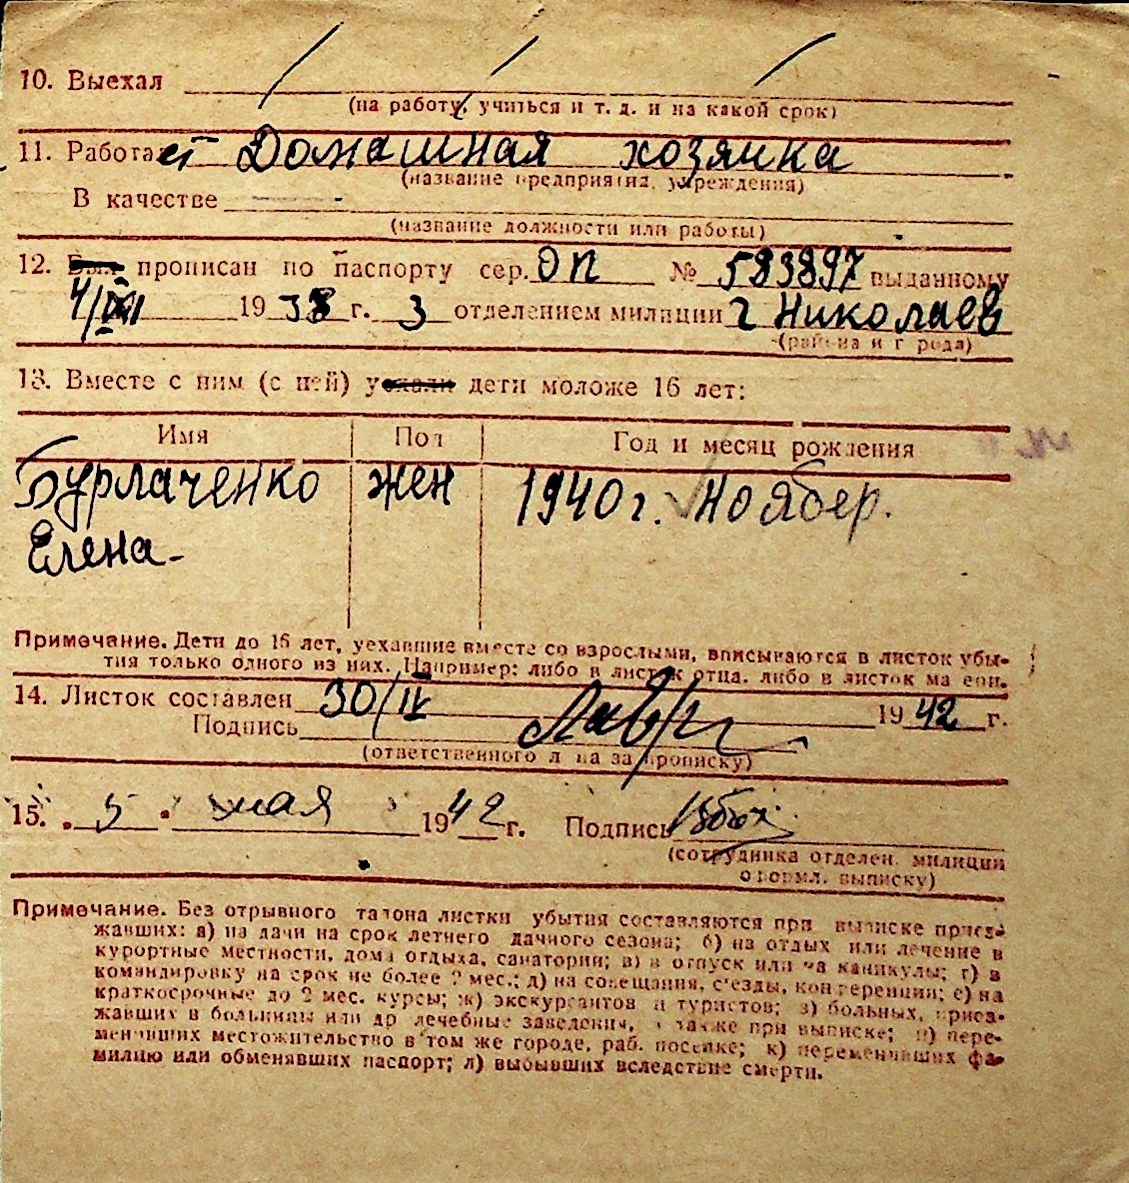 10. Выехал
(на работу, учиться и т. д. и на какой срок)
11. Работает Домашная хозяика
(название предприятия, учреждения)
В качестве
(название должности или работы)
12. Был прописан по паспорту сер. ЭП № 583897 выданному
4/ 1938 г. 3 отделением милиции г Николаев
(района и города)
13. Вместе с ним (с ней) уехали дети моложе 16 лет:
Имя Пол Год и месяц рождения
Бурлаченко жен 1940 г. Ноябер.
Елена-
Примечание. Дети до 16 лет, уехавшие вместе со взрослыми, вписываются в листок убы-
тия только одного из них. Например: либо в листок отца, либо в листок матери.
14. Листок составлен 30/IV 1942 г.
Подпись
(ответственного лица за прописку)
15. " 5 " мая 1942 г. Подпись
(сотрудника отделен. милиции
оформл. выписку)
Примечание. Без отрывного талона листки убытия составляются при выписке приез-
жавших: а) на дачи на срок летнего дачного сезона; б) на отдых или лечение в
курортные местности, дома отдыха, санатории; в) в отпуск или на каникулы; г) в
командировку на срок не более 2 мес.; д) на совещания, с'езды, конференции; е) на
краткосрочные до 2 мес. курсы; ж) экскурсантов и туристов; з) больных, приез-
жавших в больницы или др лечебные заведения, а также при выписке; и) пере-
менивших местожительство в том же городе, раб. поселке; к) переменивших фа-
милию или обменявших паспорт; л) выбывших вследствие смерти.